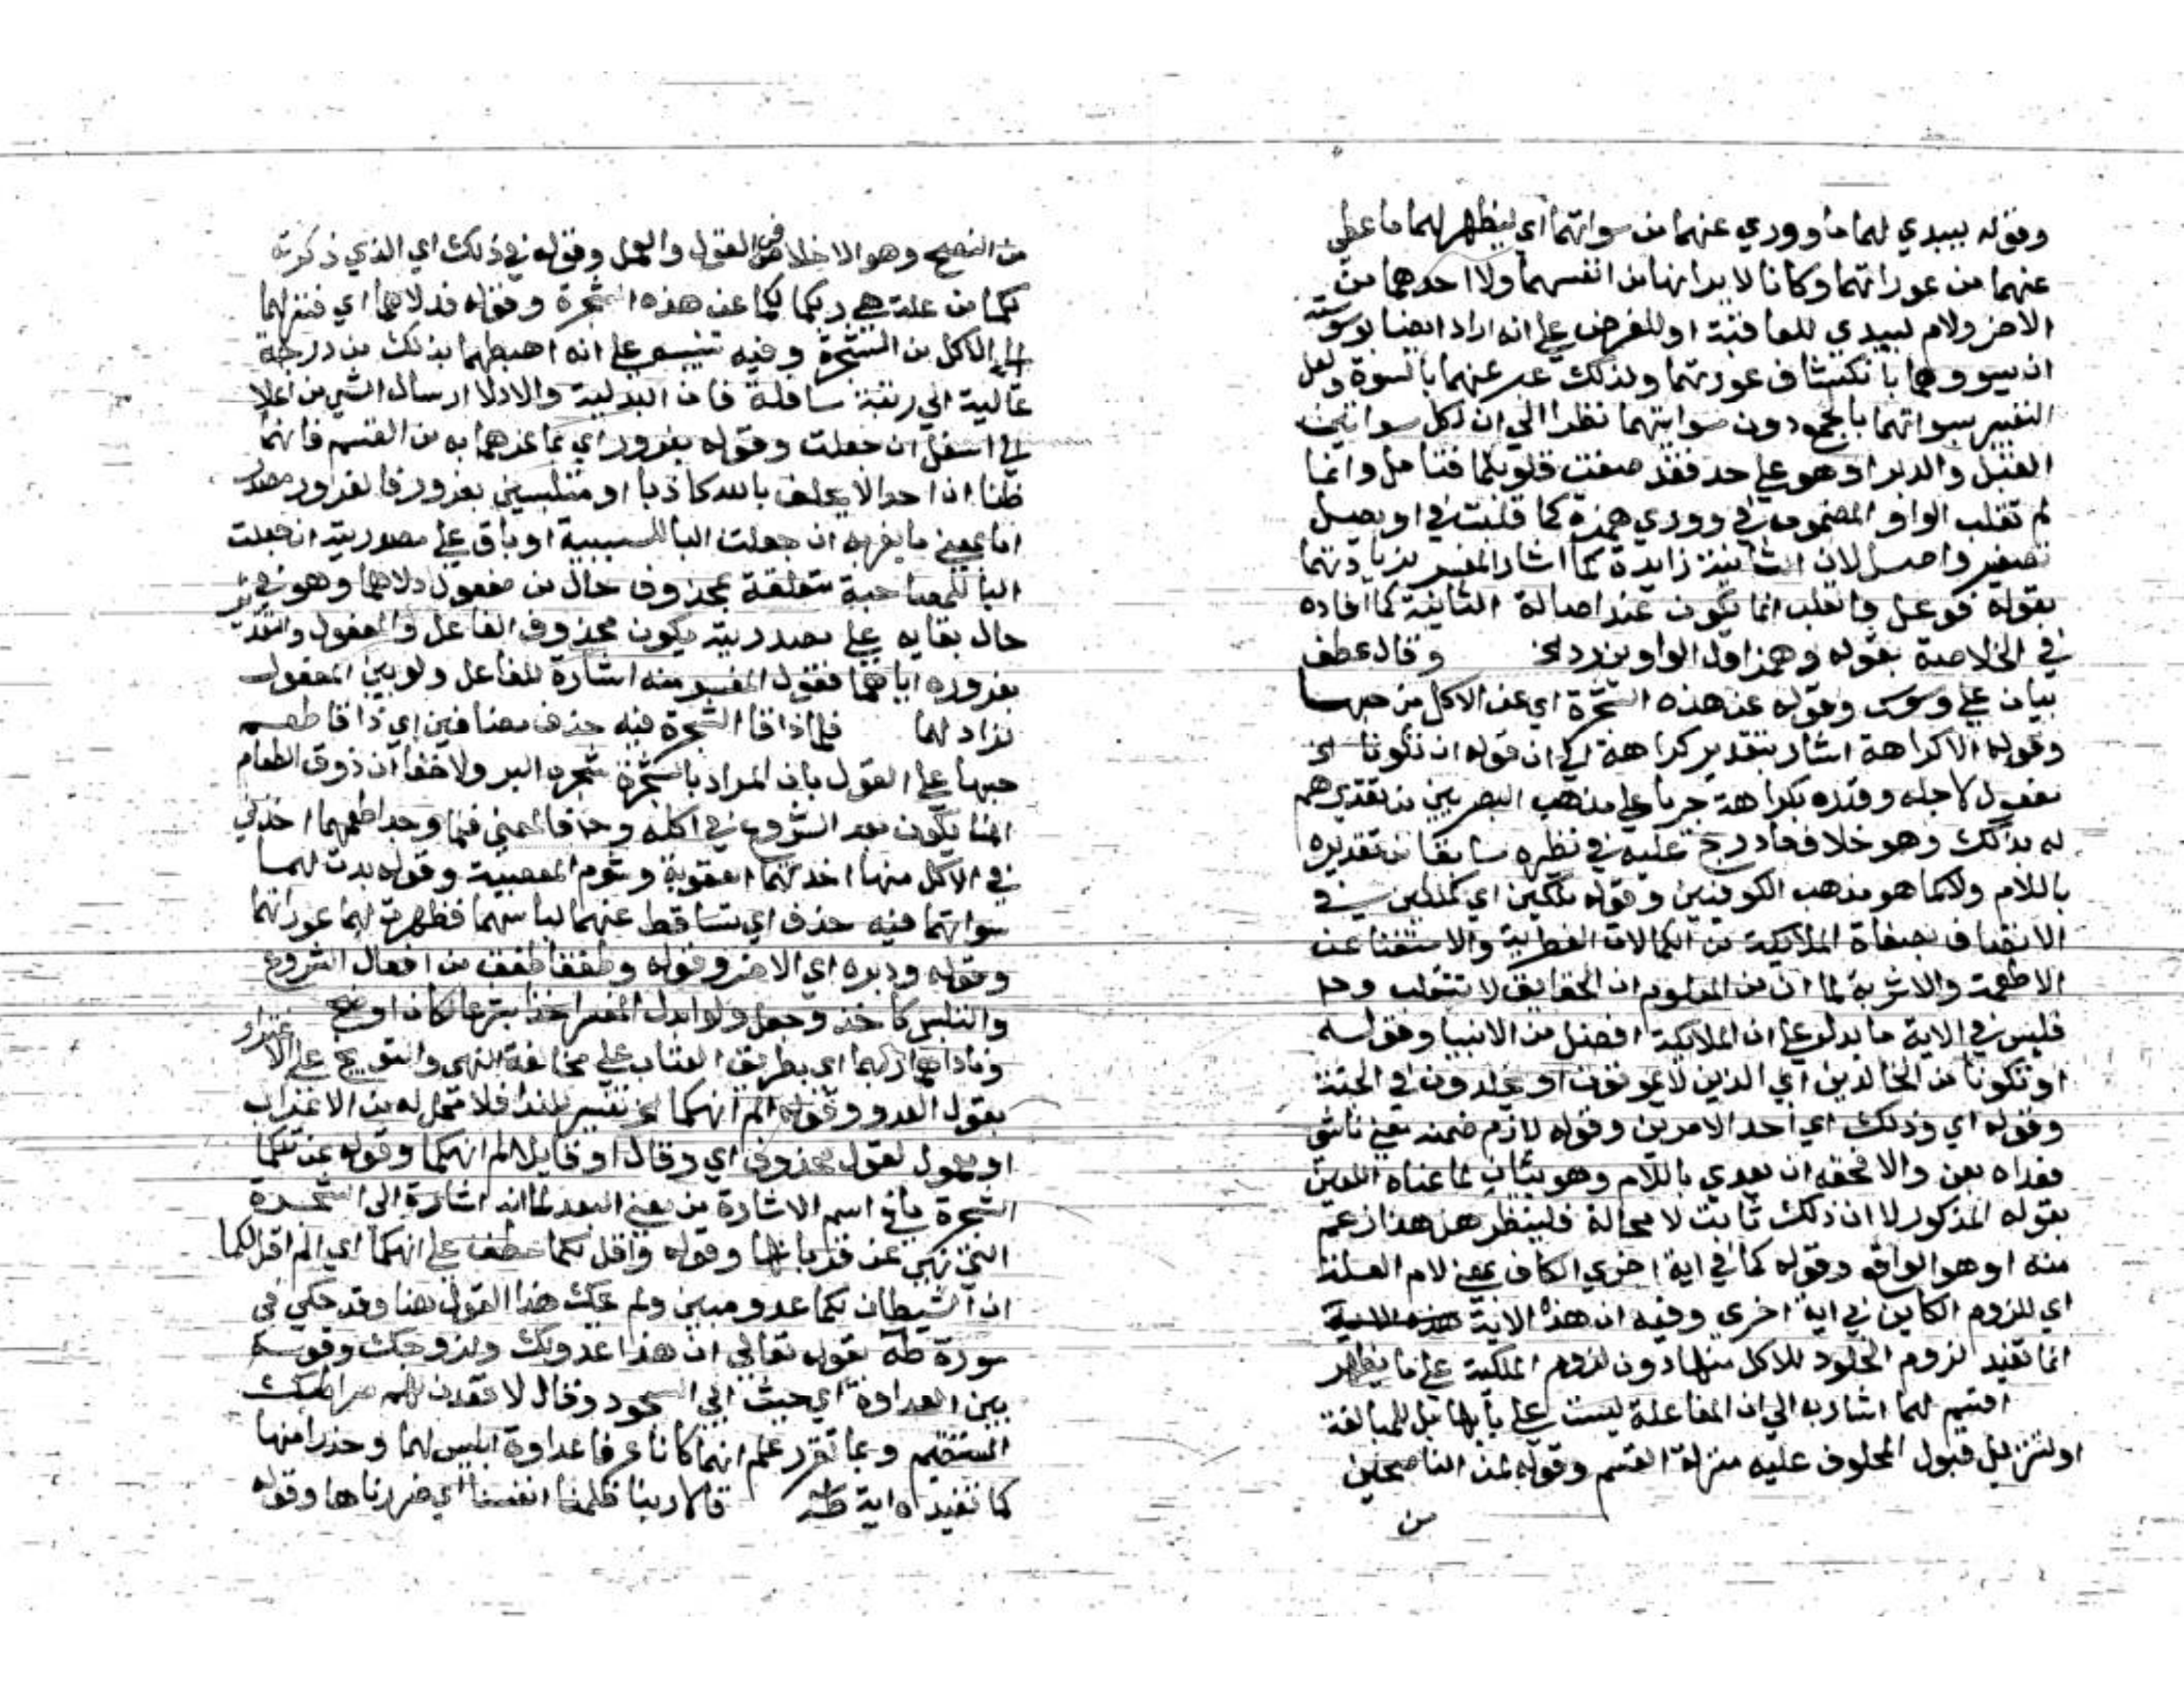 وقوله ليبدي لهما ما ووري عنهما من سواتهما اي ليظهر لهما ما غطي
عنهما من عوراتهما وكانا لا يرانها من انفسهما ولا احدهما من
الاخر ولام ليبدي للعاقبة او للغرض علي انه اراد ايضا بوسوسته
ان يسووهما بانكشاف عورتهما ولذلك عبر عنهما بالسوة ولعل
التفسير سواتهما بالجمع دون سواتيهما نظرا الي ان لكل سواتين
القبل والدبر او هو علي حد فقد صغت قلوبكما فتامل وانما
لم تقلب الواو المضمومة في ووري همزة كما قلبت في اويصل
تصغير واصل لان الثانية زايدة كما اشار المفسر بزيادتها
بقوله فوعل والقلب انما يكون عند اصالة الثانية كما افاده
في الخلاصة بقوله وهمز اول الواوين رد الخ وقال عطف
بيان علي وسوس وقوله عن هذه الشجرة اي عن الاكل من حبها
وقوله الا كراهة اشار بتقدير كراهة الي ان قوله ان تكونا الخ
مفعول لاجله وقدره بكراهة جريا علي مذهب البصريين من تقديرهم
له بذلك وهو خلاف ما درج عليه في نظيره سابقا من تقديره
باللام ولا كما هو مذهب الكوفيين وقوله ملكين اي كملكين في
الاتصاف بصفاة الملايكة من الكمالات الفطرية والاستغنا عن
الاطعمة والاشربة لما ان من المعلوم ان الحقايق لا تنقلب وح
فليس في الاية ما يدل علي ان الملايكة افضل من الانبيا وقوله
او تكونا من الخالدين اي الذين لا يموتون او يخلدون في الجنة
وقوله اي وذلك اي احد الامرين وقوله لازم ضمنه معني ناشي
فعداه بعن والا فحقه ان يعدي باللام وهو بيان لما عناه اللعين
بقوله المذكور لا ان ذلك ثابت لا محالة فلينظر هل هذا زعم
منه او هو الواقع وقوله كما في اية اخري الكاف بمعني لام العلة
اي للزوم الكاين في اية اخري وفيه ان هذه الاية
انما تفيد لزوم الخلود للاكل منها دون لزوم الملكية علي ما يظهر
اقسم لهما اشار به الي ان المفاعلة ليست علي بابها بل للمبالغة
او لتنزيل قبول المحلوف عليه منزلة القسم وقوله لمن الناصحين
من
من النصح وهو الاخلاص في القول والعمل وقوله في ذلك اي الذي ذكرته
لكما من علة نهي ربكما لكما عن هذه الشجرة وقوله فدلاهما اي فنزلهما
الي الاكل من الشجرة وفيه تنبيه علي انه اهبطهما بذلك من درجة
عالية الي رتبة سافلة فان التدلية والادلا ارسال الشي من اعلا
الي اسفل ان جعلت وقوله بغرور اي بما غرهما به من القسم فانهما
ظنا ان احدا لا يحلف بالله كاذبا او متلبسين بغرور فالغرور مصدر
اما بمعني ما يغر به ان جعلت البا للسببية او باق علي مصدريته ان جعلت
البا للمصاحبة متعلقة بمحذوف حال من مفعول دلاهما وهو في
حال بقايه علي مصدريته يكون محذوف الفاعل والمفعول والتقدير
بغروره اياهما فقول المفسر منه اشارة للفاعل ولو بين المفعول
لزاد لهما فلما ذاقا الشجرة فيه حذف مضافين اي ذاقا طعم
حبها علي القول بان المراد بالشجرة شجرة البر ولا خفا ان ذوق الطعام
انما يكون بعد الشروع في اكله وح فالمعني فلما وجدا طعمها اخذين
في الاكل منها اخذتهما العقوبة وشوم المعصية وقوله بدت لهما
سواتهما فيه حذف اي تساقط عنهما لباسهما فظهرت لهما عوراتهما
وقوله ودبره اي الاخر وقوله وطفقا طفق من افعال الشروع
والتلبس كاخذ وجعل ولو ابدل المفسر اخذا بشرعا لكان اوضح
وناداهما ربهما اي بطريق العتاب علي مخالفة النهي والتوبيخ علي الاغترار
بقول العدو وقوله الم انهكما الخ تفسير للندا فلا محل له من الاعراب
او معمول لقول محذوف اي وقال او قايلا الم انهكما وقوله عن تلكما
الشجرة ما في اسم الاشارة من معني البعد لما انه اشارة الي الشجرة
التي نهي عن قربانها وقوله واقل لكما عطف علي انهكما اي الم اقل لكما
ان الشيطان لكما عدو مبين ولم يحك هذا القول هنا وقد حكي في
سورة طه بقوله تعالي ان هذا عدو لك ولزوجك وقوله
بين العداوة اي حيث ابي السجود وقال لاقعدن لهم صراطك
المستقيم وبما تقرر علم انهما كانا عرفا عداوة ابليس لهما وحذرا منها
كما تفيده اية طه قالا ربنا ظلمنا انفسنا اي ضررناها وقوله